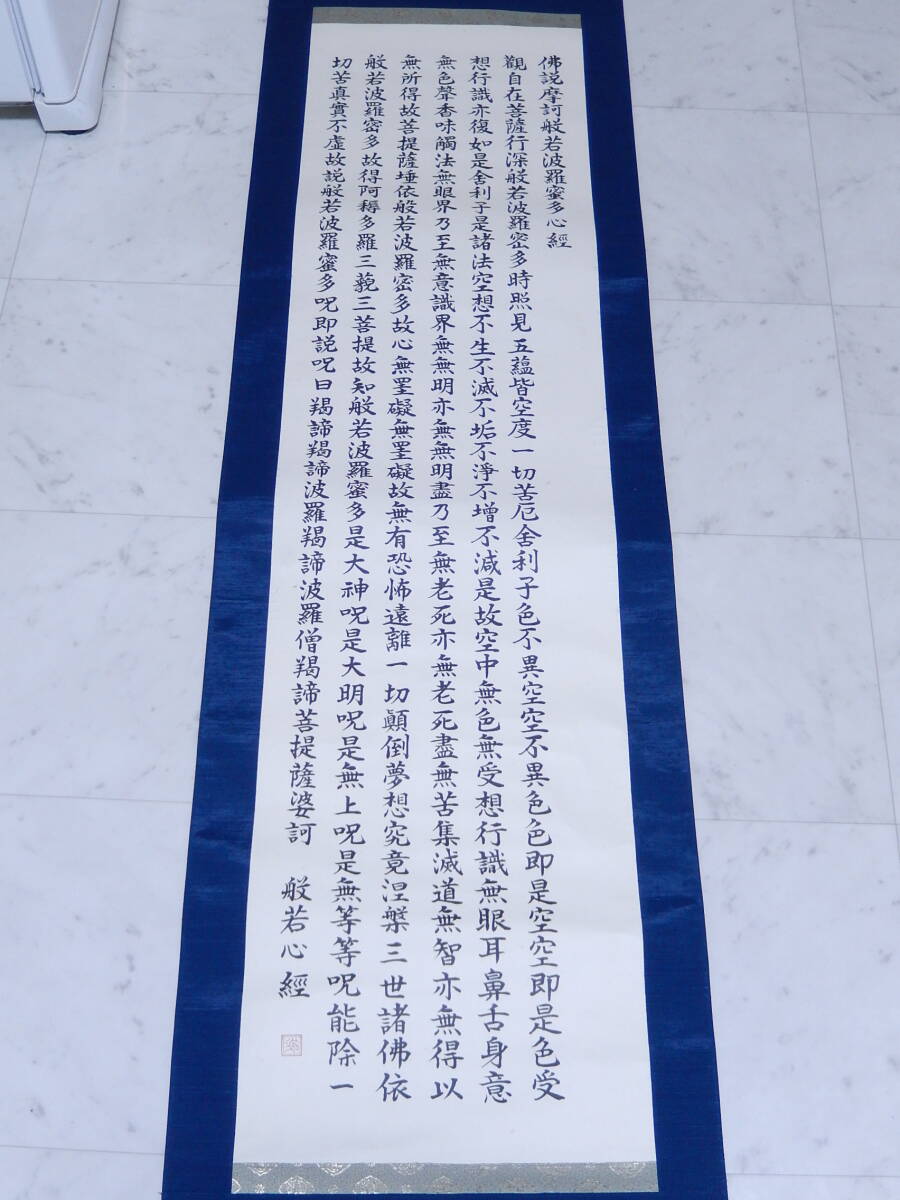 佛説摩訶般若波羅蜜多心經
觀自在菩薩行深般若波羅密多時照見五蘊皆空度一切苦厄舍利子色不異空空不異色色即是空空即是色受
想行識亦復如是舍利子是諸法空想不生不滅不垢不淨不增不減是故空中無色無受想行識無眼耳鼻舌身意
無色聲香味觸法無眼界乃至無意識界無無明亦無無明盡乃至無老死亦無老死盡無苦集滅道無智亦無得以
無所得故菩提薩埵依般若波羅密多故心無罣礙無罣礙故無有恐怖遠離一切顚倒夢想究竟涅槃三世諸佛依
般若波羅密多故得阿耨多羅三藐三菩提故知般若波羅蜜多是大神呪是大明呪是無上呪是無等等呪能除一
切苦真實不虛故説般若波羅蜜多呪即説呪曰羯諦羯諦波羅羯諦波羅僧羯諦菩提薩婆訶 般若心經